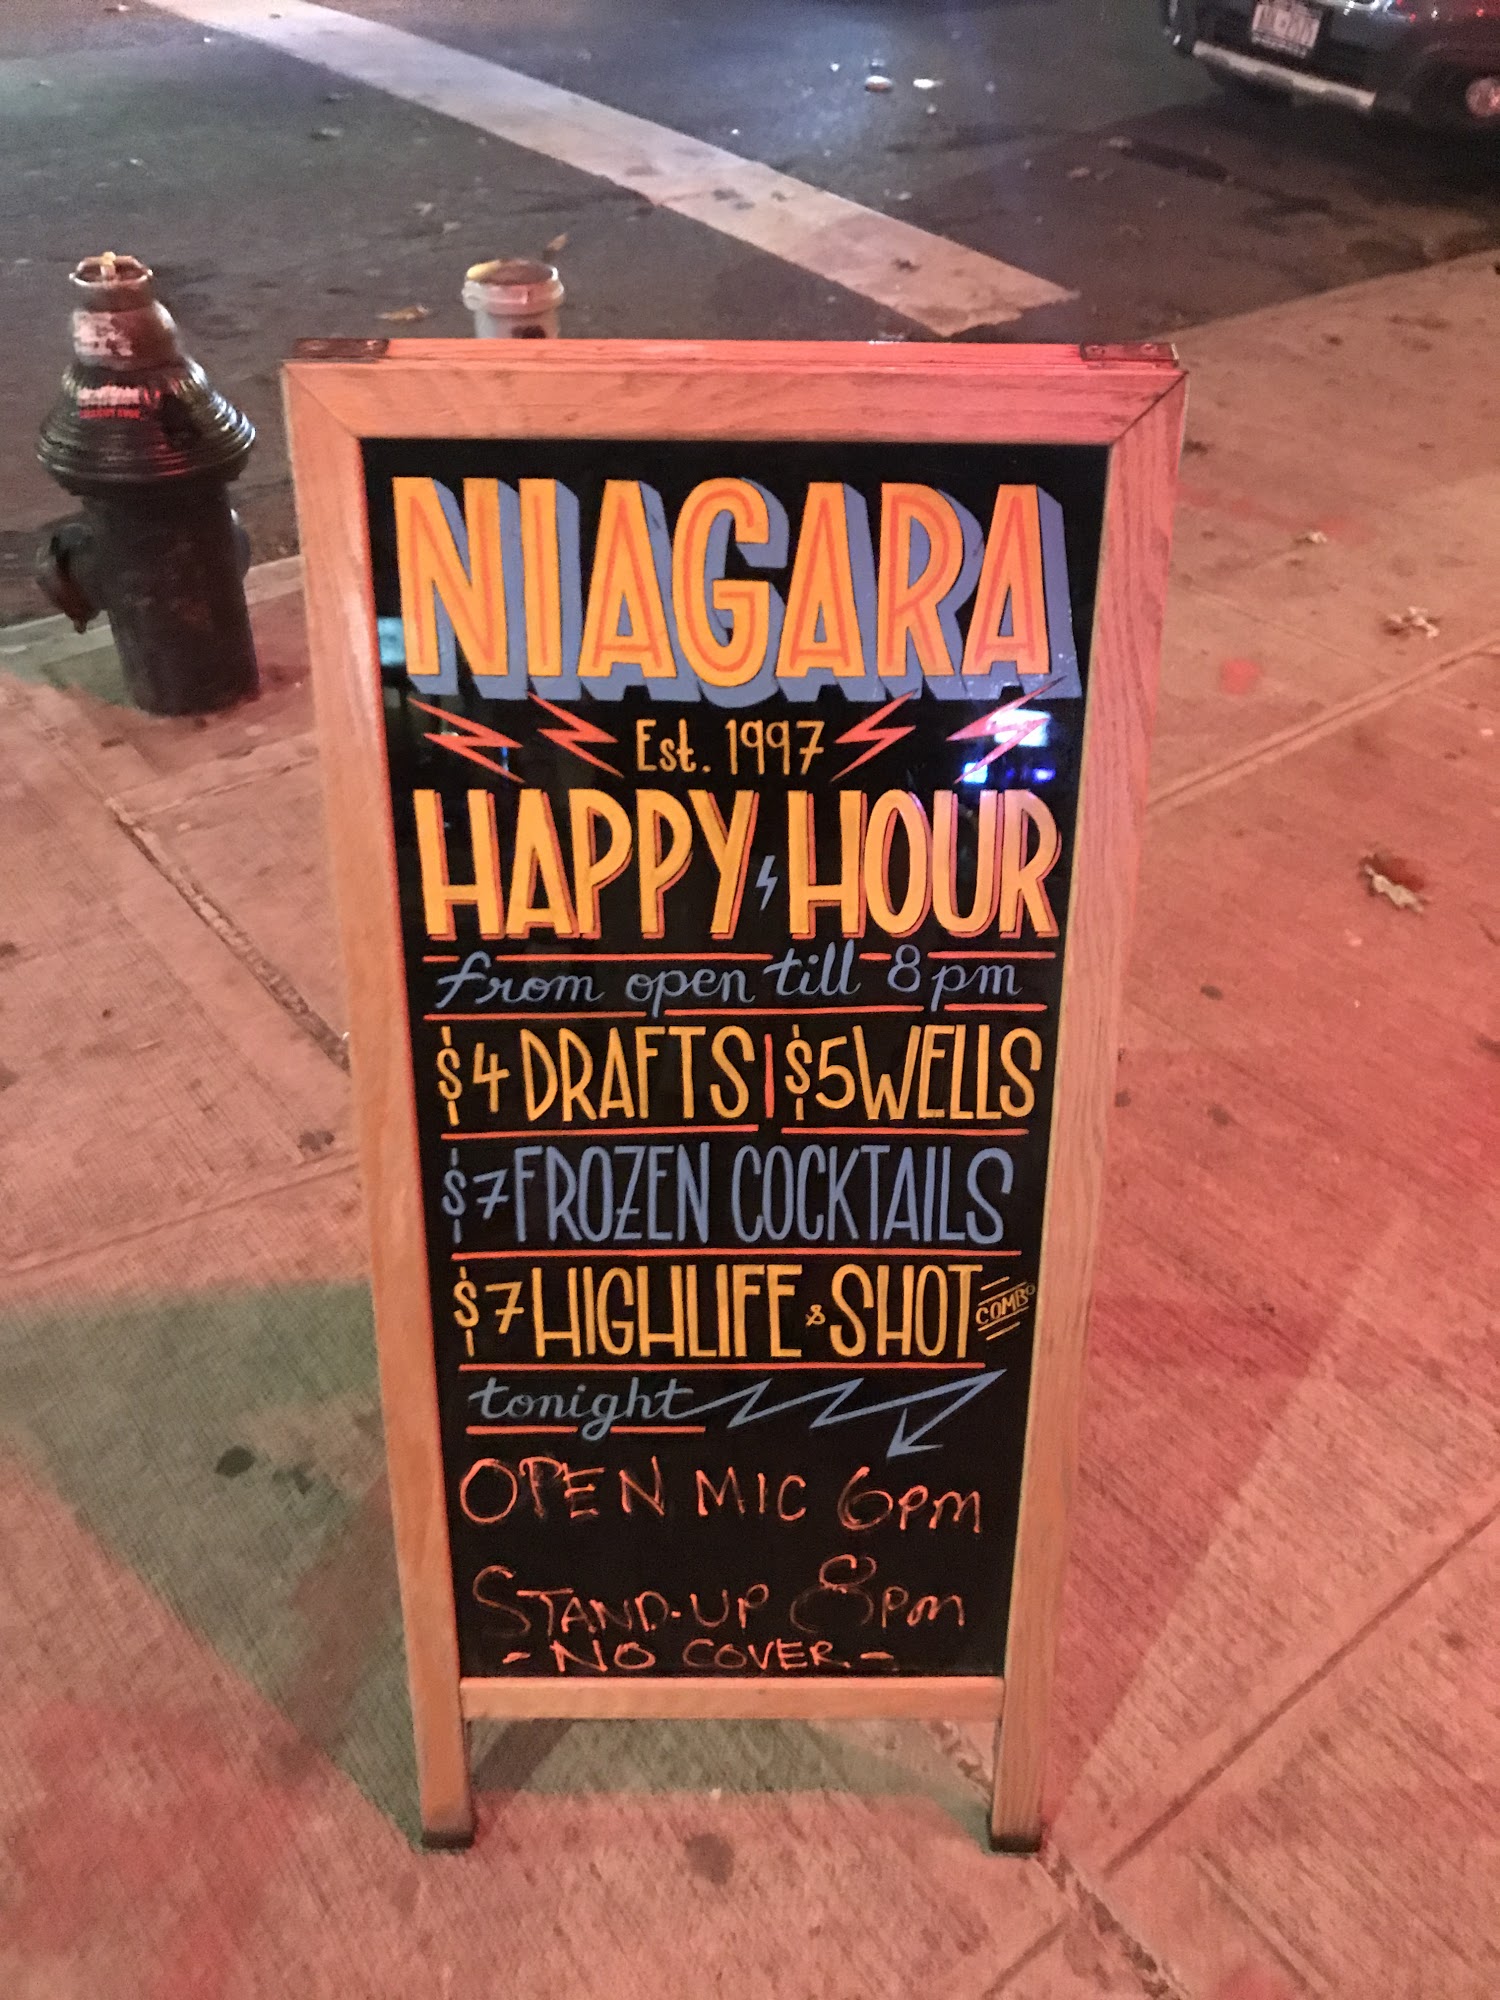 NIAGARA
Est. 1997
HAPPY HOUR
from open till 8pm
$4 DRAFTS | $5 WELLS
$7 FROZEN COCKTAILS
$7 HIGHLIFE & SHOT COMBO
tonight
OPEN MIC 6pm
STAND-UP 8pm
- NO COVER -